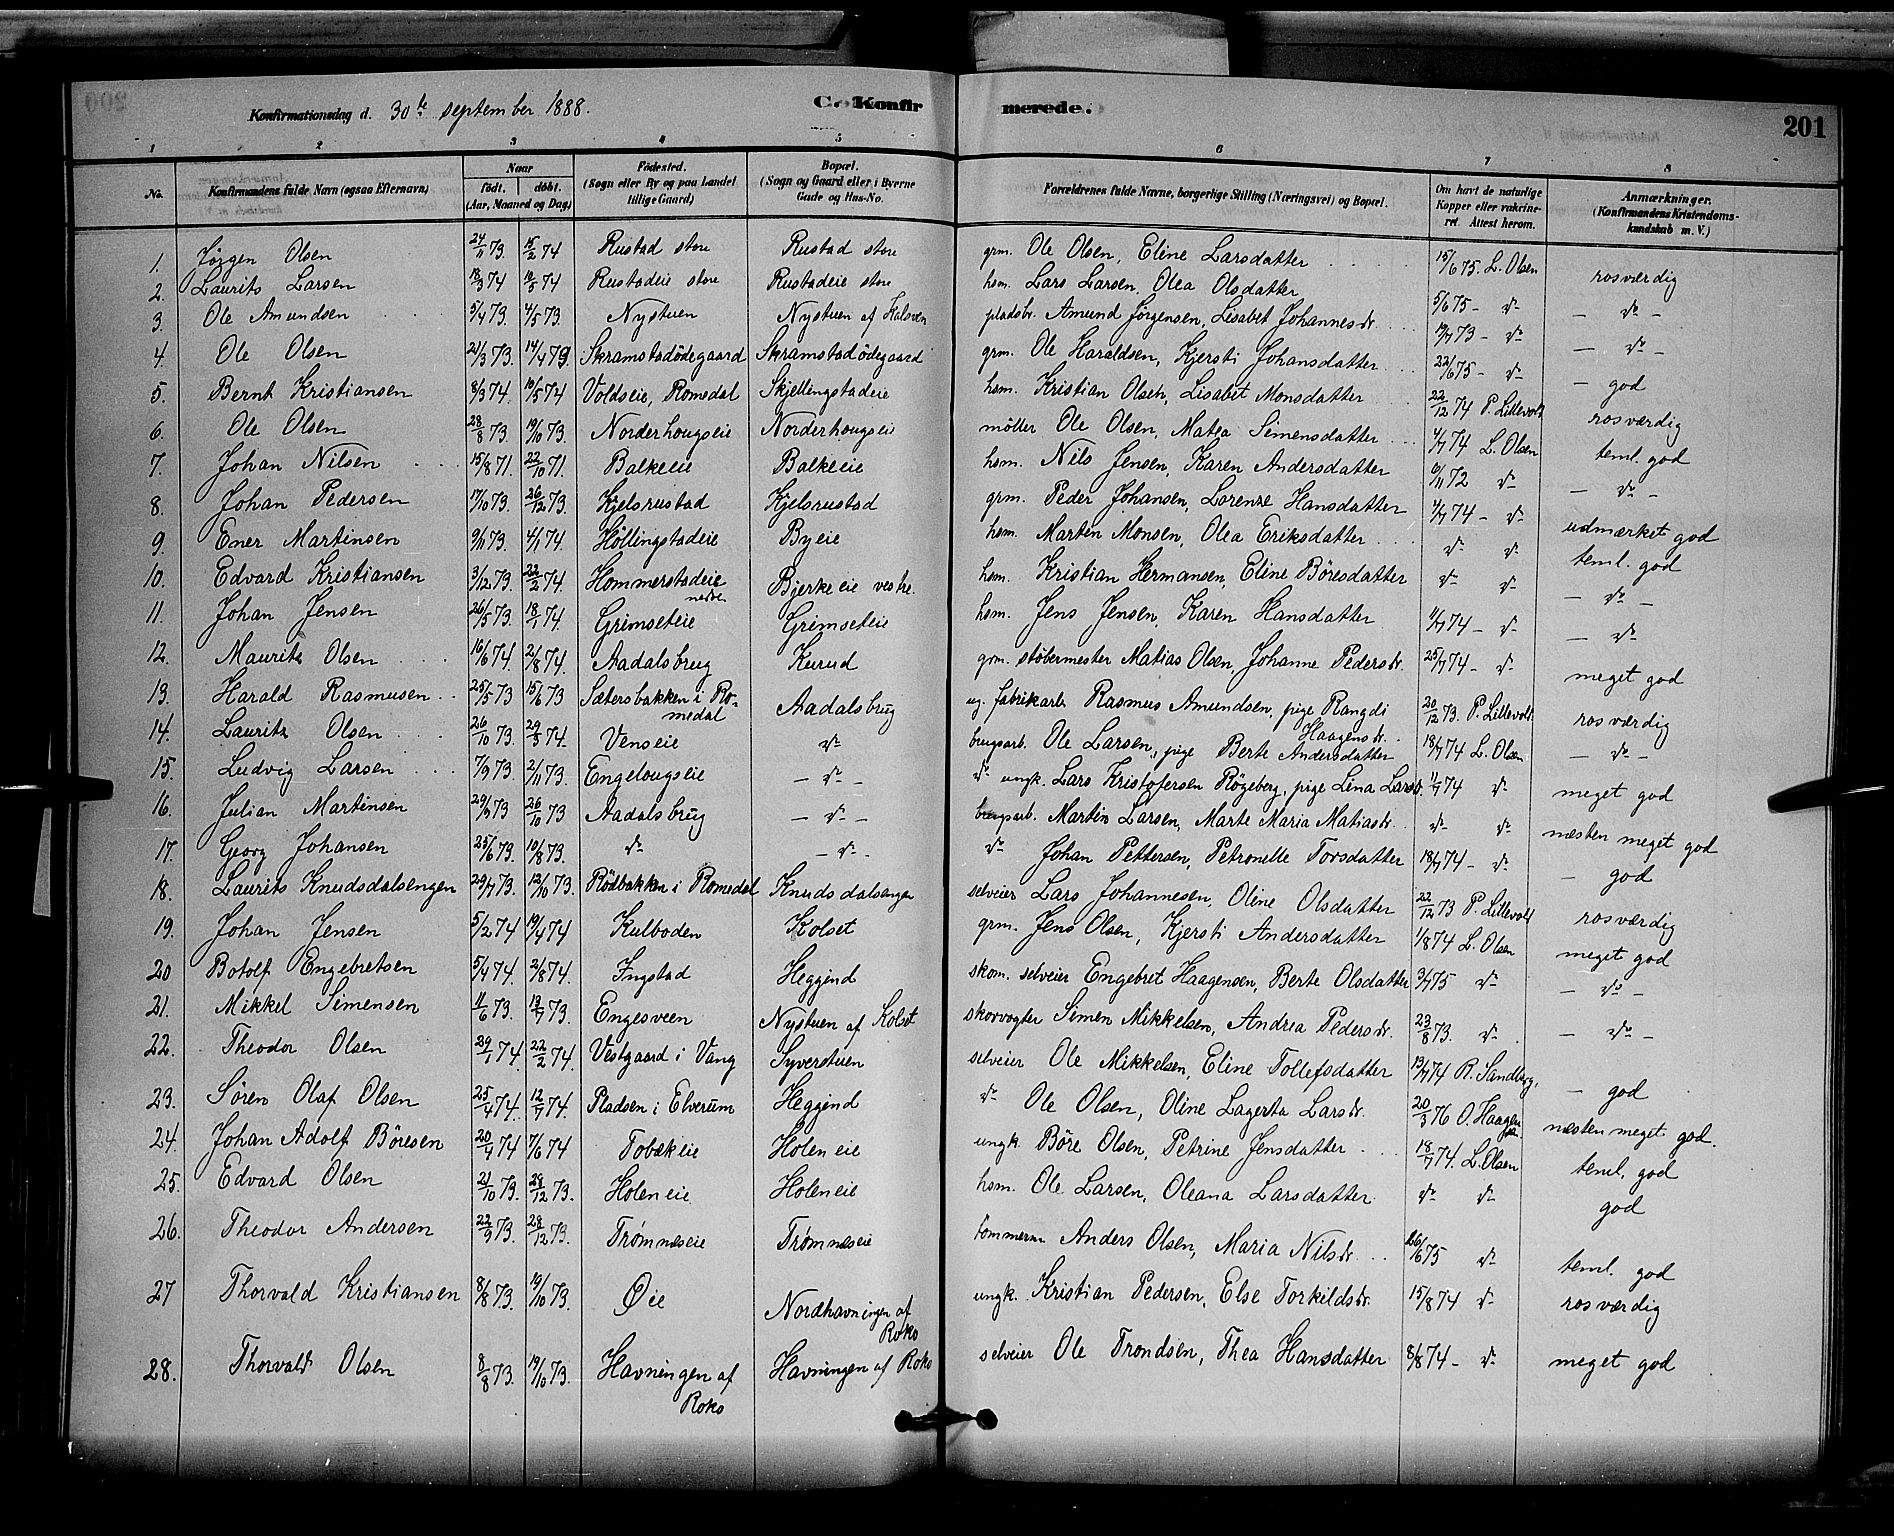 Konfirmationsdag d. 30te september 1888.
C. Konfirmerede.
201
1 2 3 4 5 6 7 8
No. Konfirmandens fulde Navn (ogsaa Efternavn) Naar født. døbt. (Aar, Maaned og Dag) Fødested. (Sogn eller By og paa Landet tillige Gaard) Bopæl. (Sogn og Gaard eller i Byerne Gade og Hus-No. Forældrenes fulde Navne, borgerlige Stilling (Næringsvei) og Bopæl. Om havt de naturlige Kopper eller vakcineret. Attest herom. Anmærkninger. (Konfirmandens Kristendomskundskab m. V.)
1. Jörgen Olsen 24/11 73. 15/2 74 Rustad store Rustad store grm. Ole Olsen, Eline Larsdatter 15/6 75. L. Olsen rosværdig
2. Laurits Larsen 18/3 74 10/5 74 Rustadeie store Rustadeie store hsm. Lars Larsen, Olea Olsdatter 5/6 75 - do - do -
3. Ole Amundsen 5/4 73. 4/5 73. Nystuen Nystuen af Kolsven pladsbr. Amund Jörgensen, Lisabet Johannesdr. 19/7 73 - do - do -
4. Ole Olsen 21/3 73. 14/4 73 Skramstadödegaard Skramstadödegaard grm. Ole Haraldsen, Kjersti Johansdatter 22/6 75 - do - god
5. Bernt Kristiansen 8/3 74. 10/5 74 Voldseie, Romedal Skjellengstadeie hsm. Kristian Olsen, Lisabet Monsdatter 22/12 74 P. Lillevold rosværdig
6. Ole Olsen 28/8 73. 19/10 73. Norderhougseie Norderhougseie möller Ole Olsen, Matea Simensdatter 4/7 74 L. Olsen teml. god
7. Johan Nilsen 15/8 71. 22/10 71. Balkeeie Balkeeie hsm. Nils Jensen, Karen Andersdatter 6/11 72 do - do -
8. Johan Pedersen 17/10 73. 26/12 73. Kjelsrustad Kjelsrustad grm. Peder Johansen, Lorenze Hansdatter 4/7 74 - do udmærket god
9. Ener Martinsen 9/11 73. 4/1 74. Höllingstadeie Byeie hsm. Martin Monsen, Olea Eriksdatter do do teml. god
10. Edvard Kristiansen 3/12 73. 22/2 74. Hommerstadeie nedre Bjerkeeie vestre. hsm. Kristian Hermansen, Eline Böresdatter do do - do -
11. Johan Jensen 26/5 73. 18/1 74. Grimseteie Grimseteie hsm. Jens Jensen, Karen Hansdatter 4/7 74 - do - do
12. Maurits Olsen 16/6 74. 2/8 74. Aadalsbrug Kurud grm. støbermester Matias Olsen, Johanne Pedersdr. 25/7 74 - do meget god
13. Harald Rasmusen 25/5 73 15/6 73 Sætersbakken i Romedal Aadalsbrug ug. fabrikarb. Rasmus Amundsen, pige Rangdi Haagensdr. 20/12 73. P. Lillevold. rosværdig
14. Laurits Olsen 26/10 73. 29/3 74. Venseie do brugsarb. Ole Larsen, pige Berte Andersdatter 18/7 74 L. Olsen - do -
15. Ludvig Larsen 7/9 73. 2/11 73. Engelougseie - do - do ungk. Lars Kristofersen Rögeberg, pige Lina Larsd. 4/7 74 do meget god
16. Julian Martinsen 29/9 73 26/10 73 Aadalsbrug - do - brugsarb. Martin Larsen, Marte Maria Matiasdr. do do næsten meget god
17. Georg Johansen 25/6 73. 10/8 73. do - do - do Johan Pettersen, Petronelle Torsdatter 18/7 74 - do - god
18. Laurits Knudsdalsengen 29/7 73. 12/10 73. Rödbakken i Romedal Knudsdalsengen selveier Lars Johannesen, Oline Olsdatter 22/12 73 P. Lillevold rosværdig
19. Johan Jensen 5/2 74 19/4 74 Kulboden Kolset grm. Jens Olsen, Kjersti Andersdatter 1/8 74 L. Olsen meget god
20 Botolf Engebretsen 5/4 74. 2/8 74. Ingstad Heggend skom. selveier Engebret Haagensen, Berte Olsdatter 3/7 75 do - do -
21. Mikkel Simensen 11/6 73. 13/7 73. Engesveen Nystuen af Kolset skovvogter Simen Mikkelsen, Andrea Pedersdr. 23/8 73. do - do -
22. Theodor Olsen 29/1 74. 22/2 74. Vestgaard i Vang Syverstuen selveier Ole Mikkelsen, Eline Tollefsdatter 13/7 74 R. Sandberg, - god
23. Sören Olaf Olsen 25/4 74. 12/7 74. Pladsen i Elverum Heggend do Ole Olsen, Oline Lagerta Larsdr. 20/3 76 O. Haagensen. næsten meget god.
24. Johan Adolf Böresen 20/4 74 7/6 74 Tobækeie Holeneie ungk. Böre Olsen, Petrine Jensdatter 18/7 74. L. Olsen teml. god
25. Edvard Olsen 21/10 73. 28/12 73. Holeneie Holeneie hsm. Ole Larsen, Oleana Larsdatter do do god
26. Theodor Andersen 22/9 73. 28/12 73. Trømnæseie Trømnæseie tömmerm Anders Olsen, Maria Nilsdr. 26/6 75 do teml. god
27 Thorvald Kristiansen 8/8 73. 19/10 73. Øie Nordhavningen af Roko ungk. Kristian Pedersen, Else Torkildsdr. 15/8 74 do rosværdig
28. Thorvald Olsen 8/8 73. 19/10 73. Havningen af Roko Havningen af Roko selveier Ole Trondsen, Thea Hansdatter 8/8 74 - do meget god